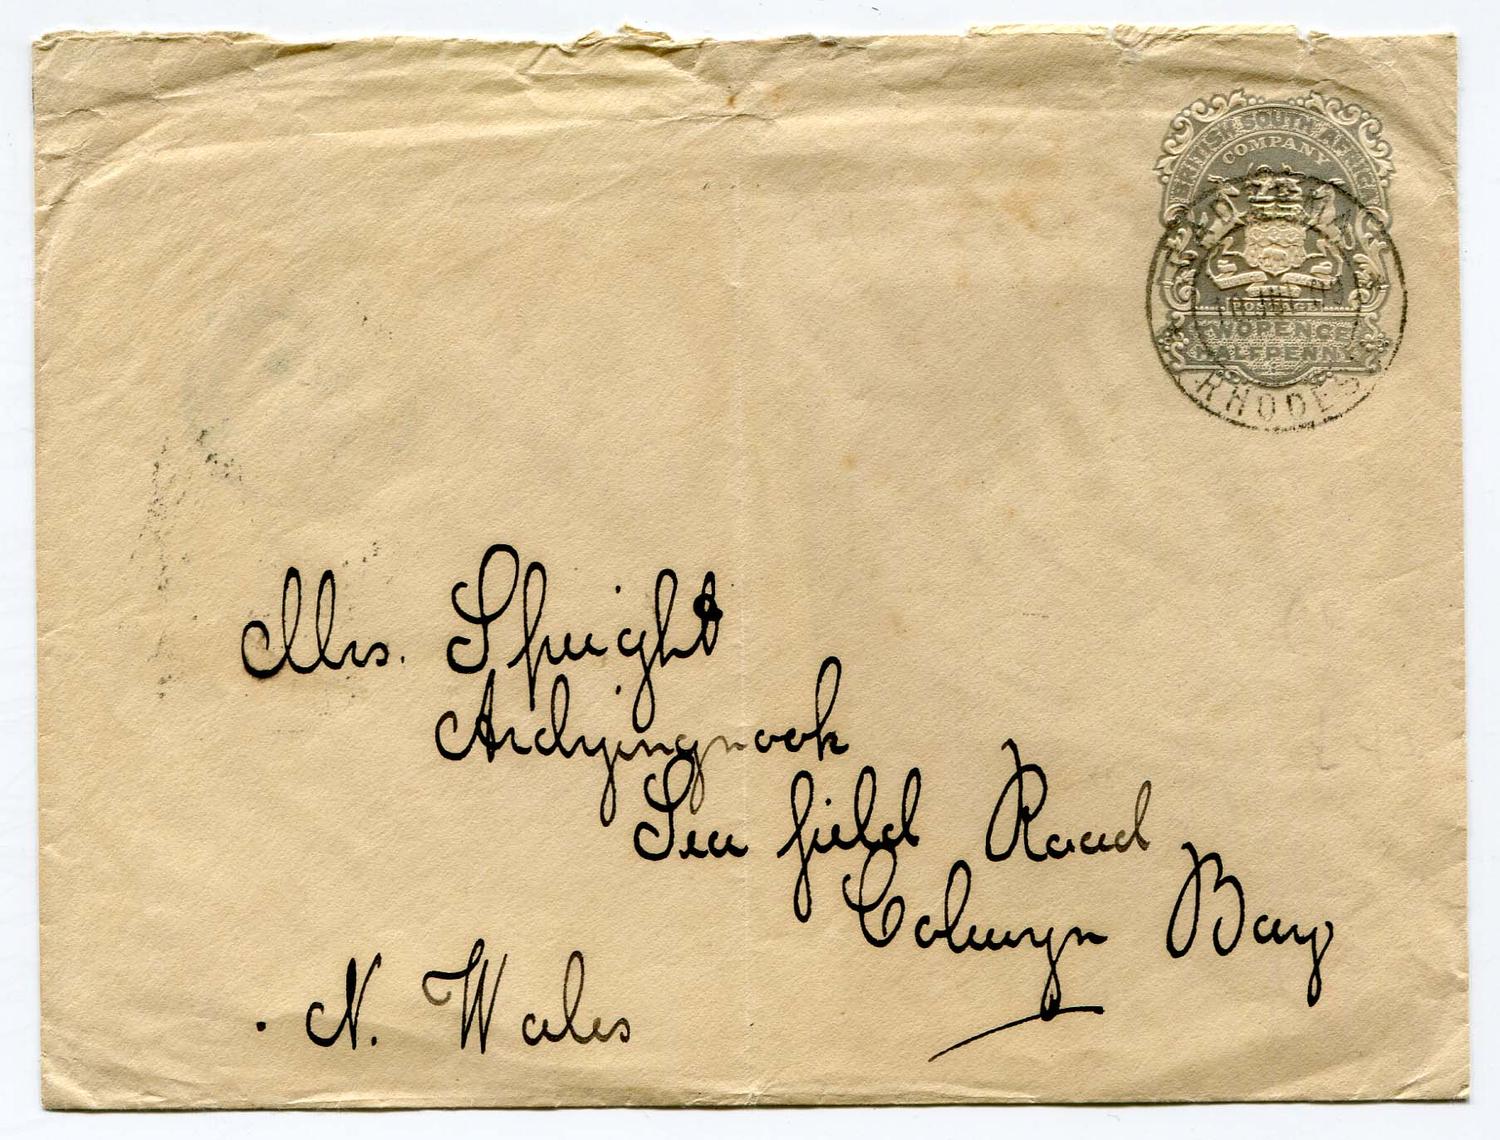 BRITISH SOUTH AFRICA
COMPANY
POSTAGE
TWOPENCE
HALFPENNY
RHODES
Mrs. Speight
Ardyingnook
Sea field Road
Colwyn Bay
N. Wales